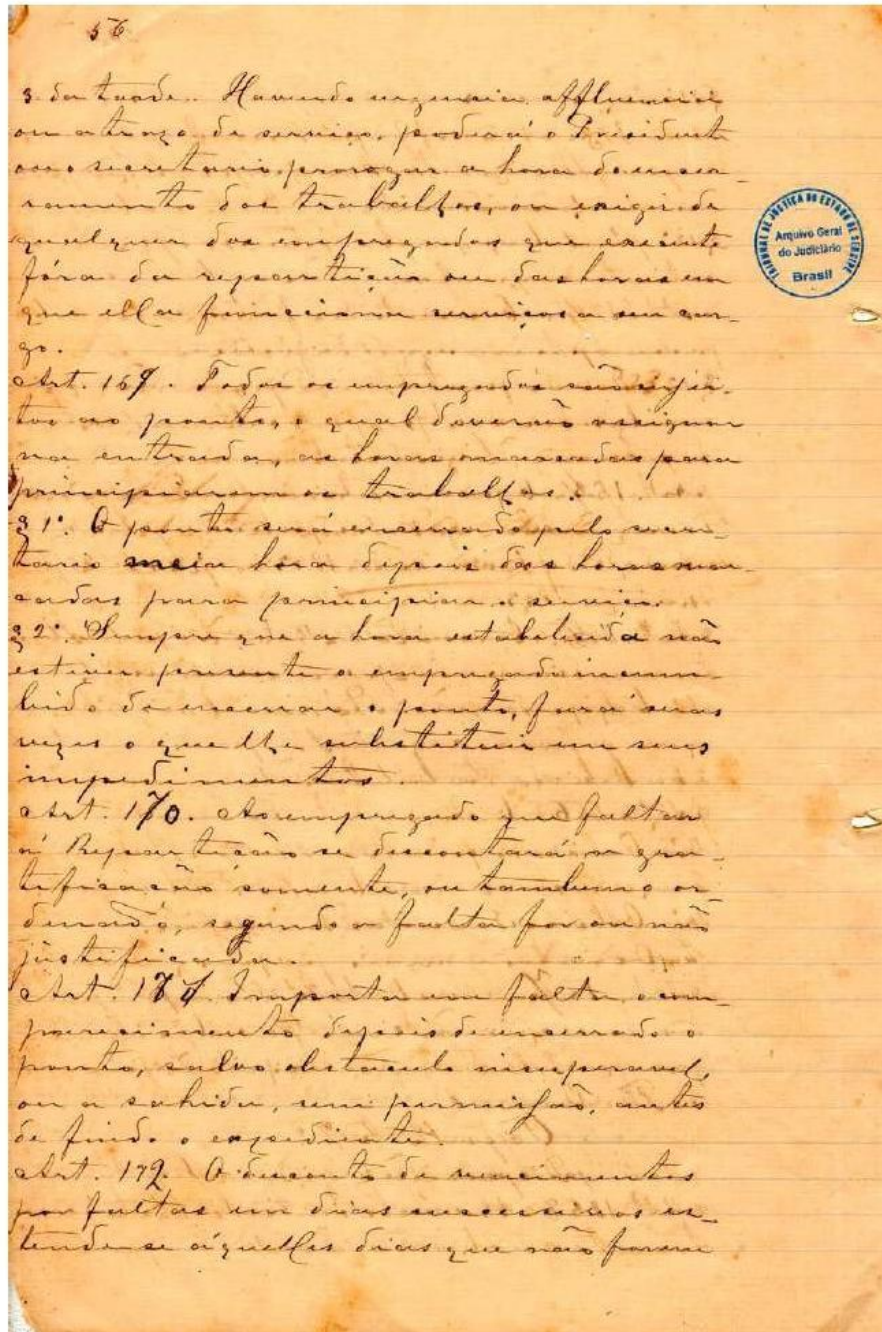 56
3 da tarde. Havendo urgencia, affluencia
ou atrazo de serviço, poderá o Presidente
ou o secretario prorogar a hora do encer-
ramento dos trabalhos, ou exigir de
qualquer dos empregados que execute
fóra da repartição ou das horas em
que ella funcciona serviços a seu car-
go.
Art. 169. Todos os empregados são sujei-
tos ao ponto, o qual deverão assignar
na entrada, as horas marcadas para
principiarem os trabalhos.
§ 1º. O ponto será encerrado pelo secre-
tario meia hora depois das horas mar-
cadas para principiar o serviço.
§ 2º. Sempre que a hora estabelecida não
estiver presente o empregado incum-
bido de encerrar o ponto, fará suas
vezes o que lhe substituir em seus
impedimentos.
Art. 170. Ao empregado que faltar
á Repartição se descontará a gra-
tificação somente, ou tambem o or-
denado, segundo a falta for ou não
justificada.
Art. 171 Importa em falta o com-
parecimento depois de encerrado o
ponto, salvo obstaculo insuperavel,
ou a sahida, sem permissão, antes
de findo o expediente.
Art. 172. O desconto de vencimentos
por faltas em dias successivos es-
tende-se áquelles dias que não forem
TRIBUNAL DE JUSTIÇA DO ESTADO DE SERGIPE
Arquivo Geral
do Judiciário
Brasil